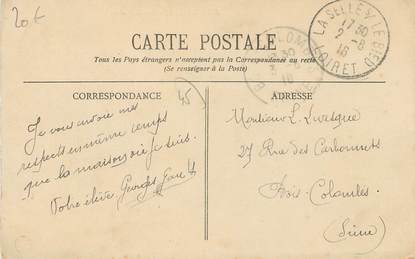 20€
CARTE POSTALE
Tous les Pays étrangers n'acceptent pas la Correspondance au recto
(Se renseigner à la Poste)
LA SELLE S/ LE BIED
17 30
2 - 8
16
LOIRET
CORRESPONDANCE
45
Je vous envoie mes
respects en même temps
que la maison où je suis.
Votre élève Georges
ADRESSE
Monsieur L. Levesque
27 Rue des Carbonnets
Bois-Colombes
(Seine)